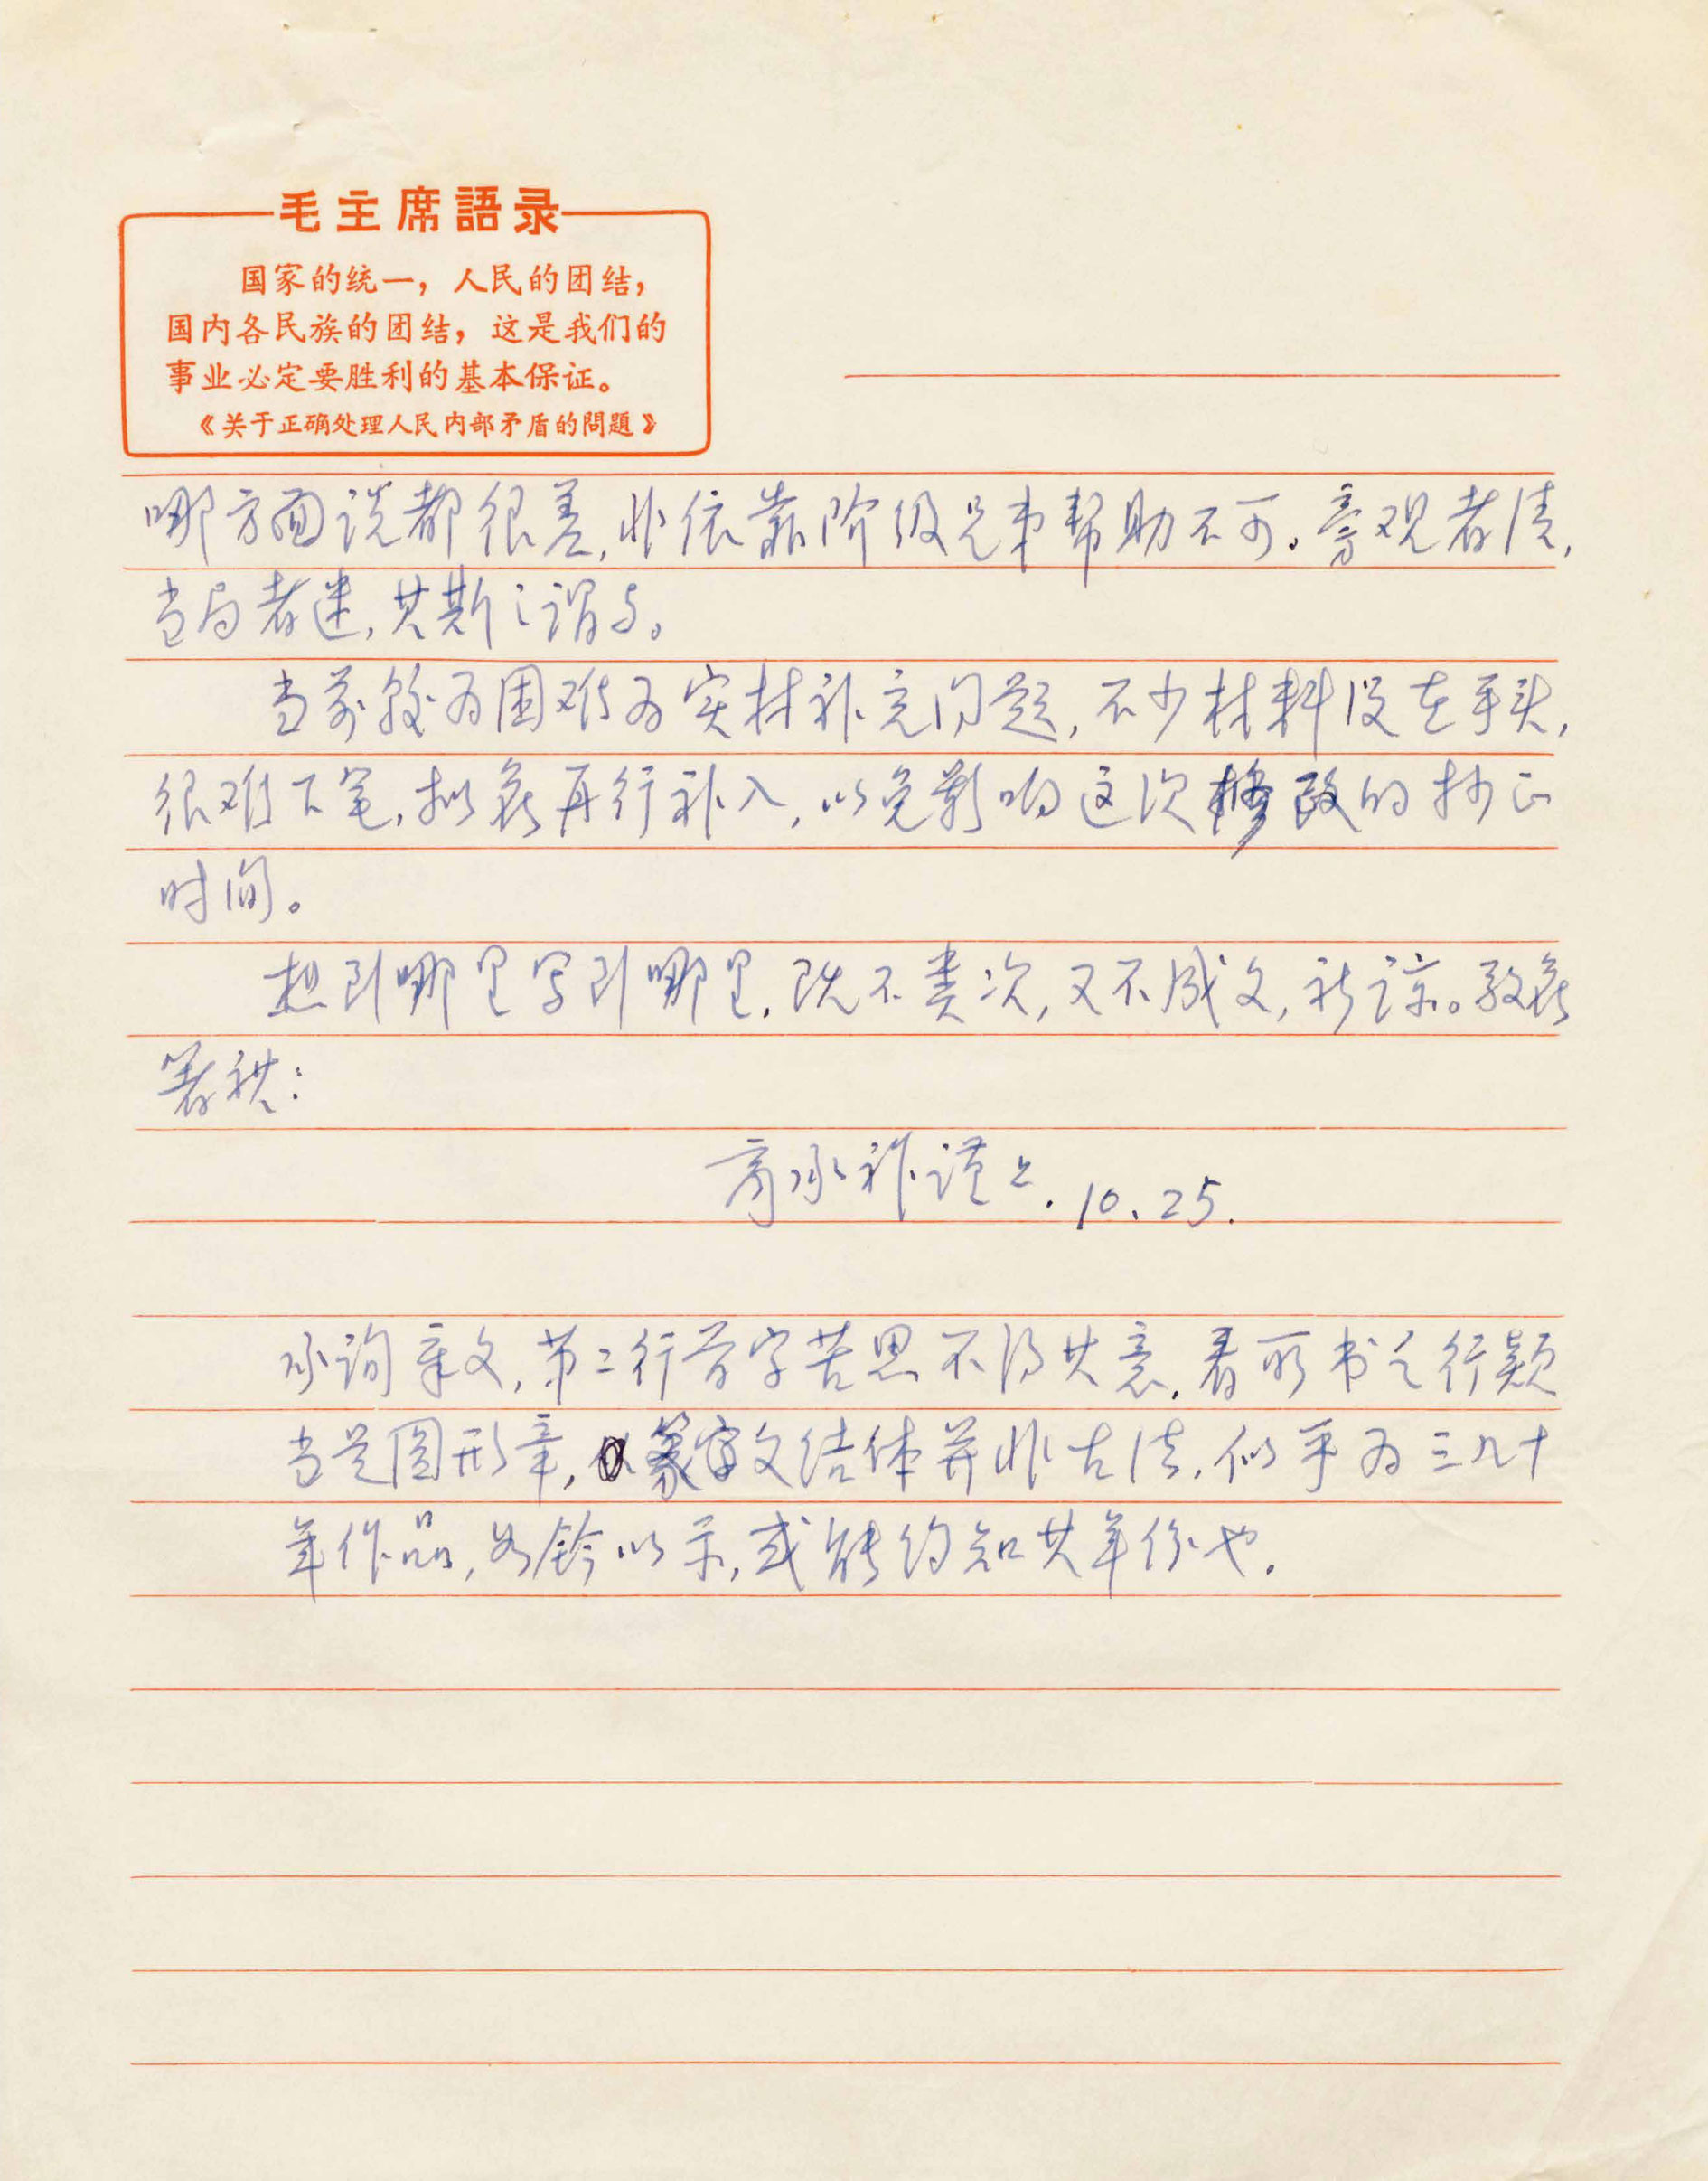 毛主席語录
国家的统一，人民的团结，
国内各民族的团结，这是我们的
事业必定要胜利的基本保证。
《关于正确处理人民内部矛盾的問題》
哪方面说都很差，非依靠阶级兄弟帮助不可。旁观者清，
当局者迷，其斯之谓与。
当前较为困难为实材补充问题，不少材料没在手头，
很难下笔，拟后再行补入，以免影响这次修改的抄正
时间。
想到哪里写到哪里，既不类次，又不成文，祈谅。敬颂
著祺：
高承祚谨上．10.25.
承询章文，第二行首字苦思不得其意，看所书之行款
当是圆形章，篆文结体并非古法，似乎为三几十
年作品，如钤以示，或能约知其年份也．